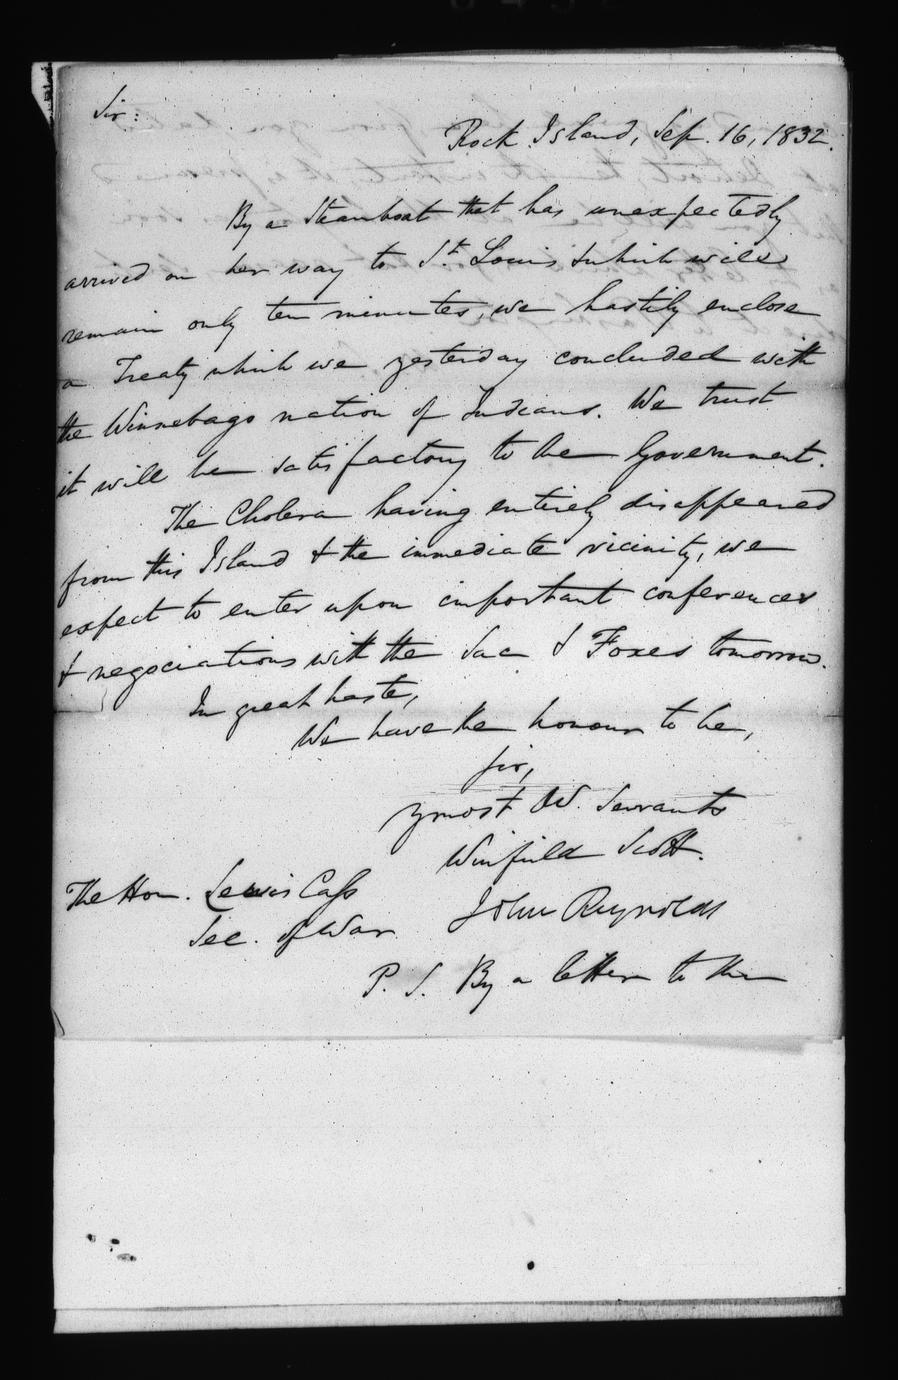 Sir:
Rock Island, Sep. 16, 1832.
By a Steamboat that has unexpectedly
arrived on her way to St. Louis & which will
remain only ten minutes, we hastily enclose
a Treaty which we yesterday concluded with
the Winnebago nation of Indians. We trust
it will be satisfactory to the Government.
The Cholera having entirely disappeared
from this Island & the immediate vicinity, we
expect to enter upon important conferences
& negociations with the Sac & Foxes tomorrow.
In great haste,
We have the honour to be,
Sir,
Yr most Ob. Servants
Winfield Scott.
The Hon. Lewis Cass
John Reynolds
Sec. of War.
P. S. By a letter to the